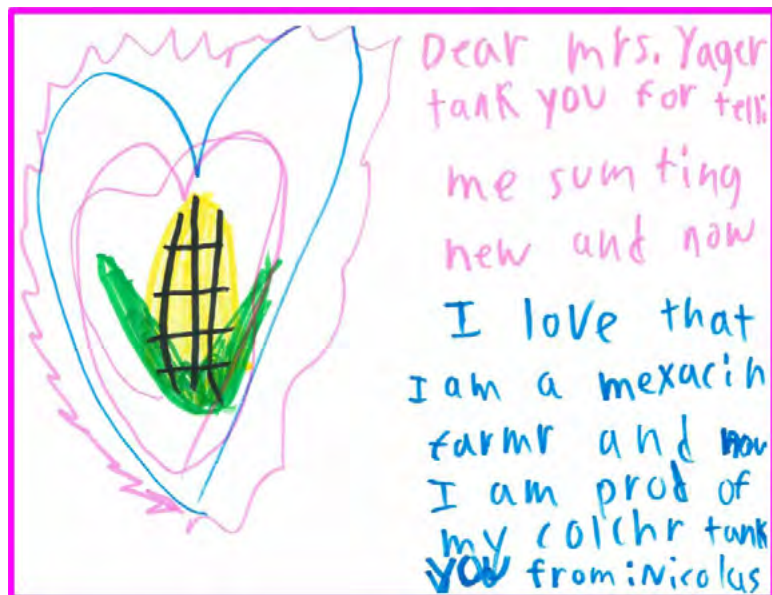 Dear mrs. Yager
tank you for telli
me sum ting
new and now
I love that
I am a mexacin
farmr and now
I am prod of
my colchr tank
you from:Nicolas